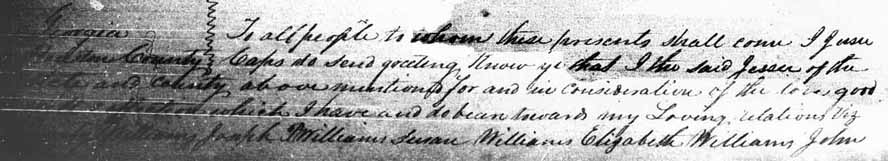 Georgia To all people to whom these presents shall come I Jesse
County Caps do send greeting Know ye that I the said Jesse of the
and county above mentiond for and in consideration of the love good
which I have and do bear towards my Loving relations Viz
Joseph Williams Susan Williams Elizabeth Williams John